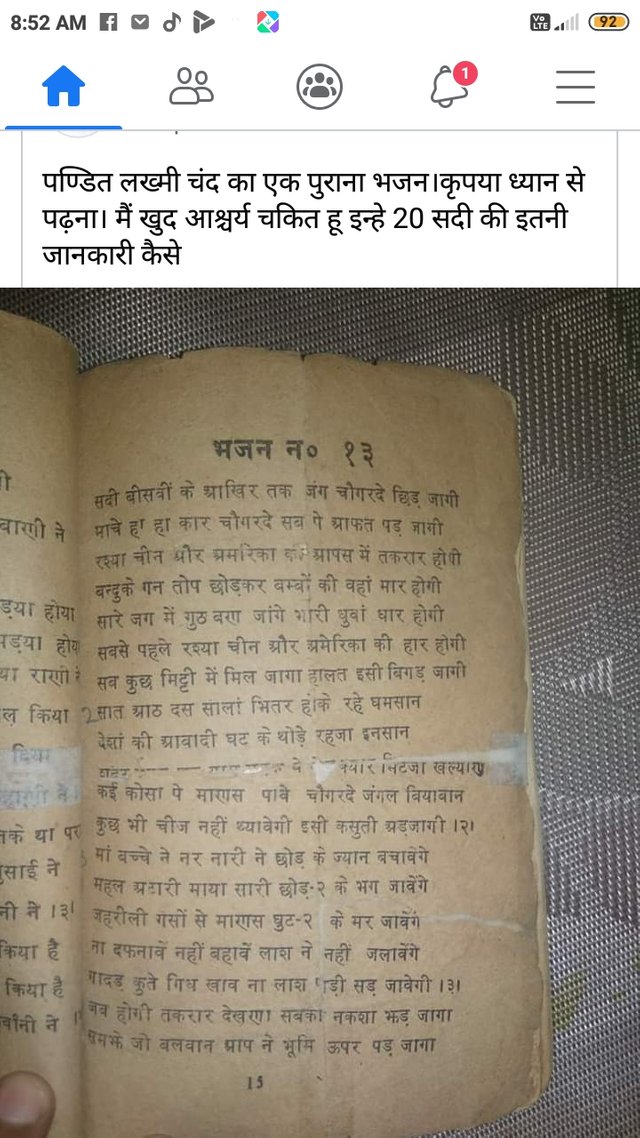 8:52 AM
Vo LTE
92
1
पण्डित लख्मी चंद का एक पुराना भजन।कृपया ध्यान से
पढ़ना। मैं खुद आश्चर्य चकित हू इन्हे 20 सदी की इतनी
जानकारी कैसे
वाणी ने
होया
होय
राणी
किया
दिया
तके था पर
ने
नी ने ।३।
किया है
किया है
ने
भजन न० १३
सदी बीसवीं के आखिर तक जंग चौगरदे छिड़ जागी
माचे हा हा कार चौगरदे सब पे आफत पड़ जागी
रश्या चीन और अमरिका की आपस में तकरार होगी
बन्दुके गन तोप छोड़कर बम्बों की वहां मार होगी
सारे जग में गुठ बण जांगे भारी धुवां धार होगी
सबसे पहले रश्या चीन और अमेरिका की हार होगी
सब कुछ मिट्टी में मिल जागा हालत इसी बिगड़ जागी
2 सात आठ दस सालां भितर होके रहे घमसान
देशां की आबादी घट के थोड़े रहजा इनसान
मिटजा खल्याण
कई कोसा पे माणस पावे चौगरदे जंगल बियाबान
कुछ भी चीज नहीं थ्यावेगी इसी कसुती अड़जागी ।२।
मां बच्चे ने नर नारी ने छोड़ के ज्यान बचावेंगे
महल अटारी माया सारी छोड़-२ के भग जावेंगे
जहरीली गैसों से माणस घुट-२ के मर जावेंगे
ना दफनावें नहीं बहावें लाश ने नहीं जलावेंगे
गादड़ कुते गिध खाव ना लाश पड़ी सड़ जावेगी ।३।
जब होगी तकरार देखणा सबका नकशा झड़ जागा
समझे जो बलवान आप ने भूमि ऊपर पड़ जागा
15